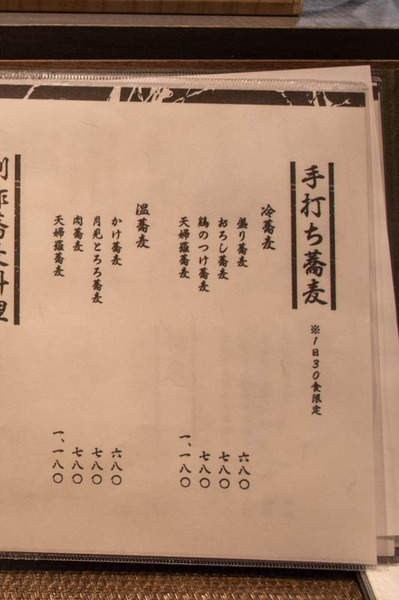 手打ち蕎麦
※1日30食限定
冷蕎麦
盛り蕎麦 六八〇
おろし蕎麦 七八〇
鶏のつけ蕎麦 七八〇
天婦羅蕎麦 一、一八〇
温蕎麦
かけ蕎麦 六八〇
月見とろろ蕎麦 七八〇
肉蕎麦 七八〇
天婦羅蕎麦 一、一八〇